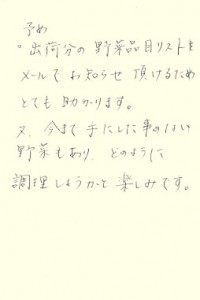 予め
"出荷分の野菜品目リストを
メールでお知らせ頂けるため
とても助かります。
又、今まで手にした事のない
野菜もあり、どのように
調理しようかと楽しみです。